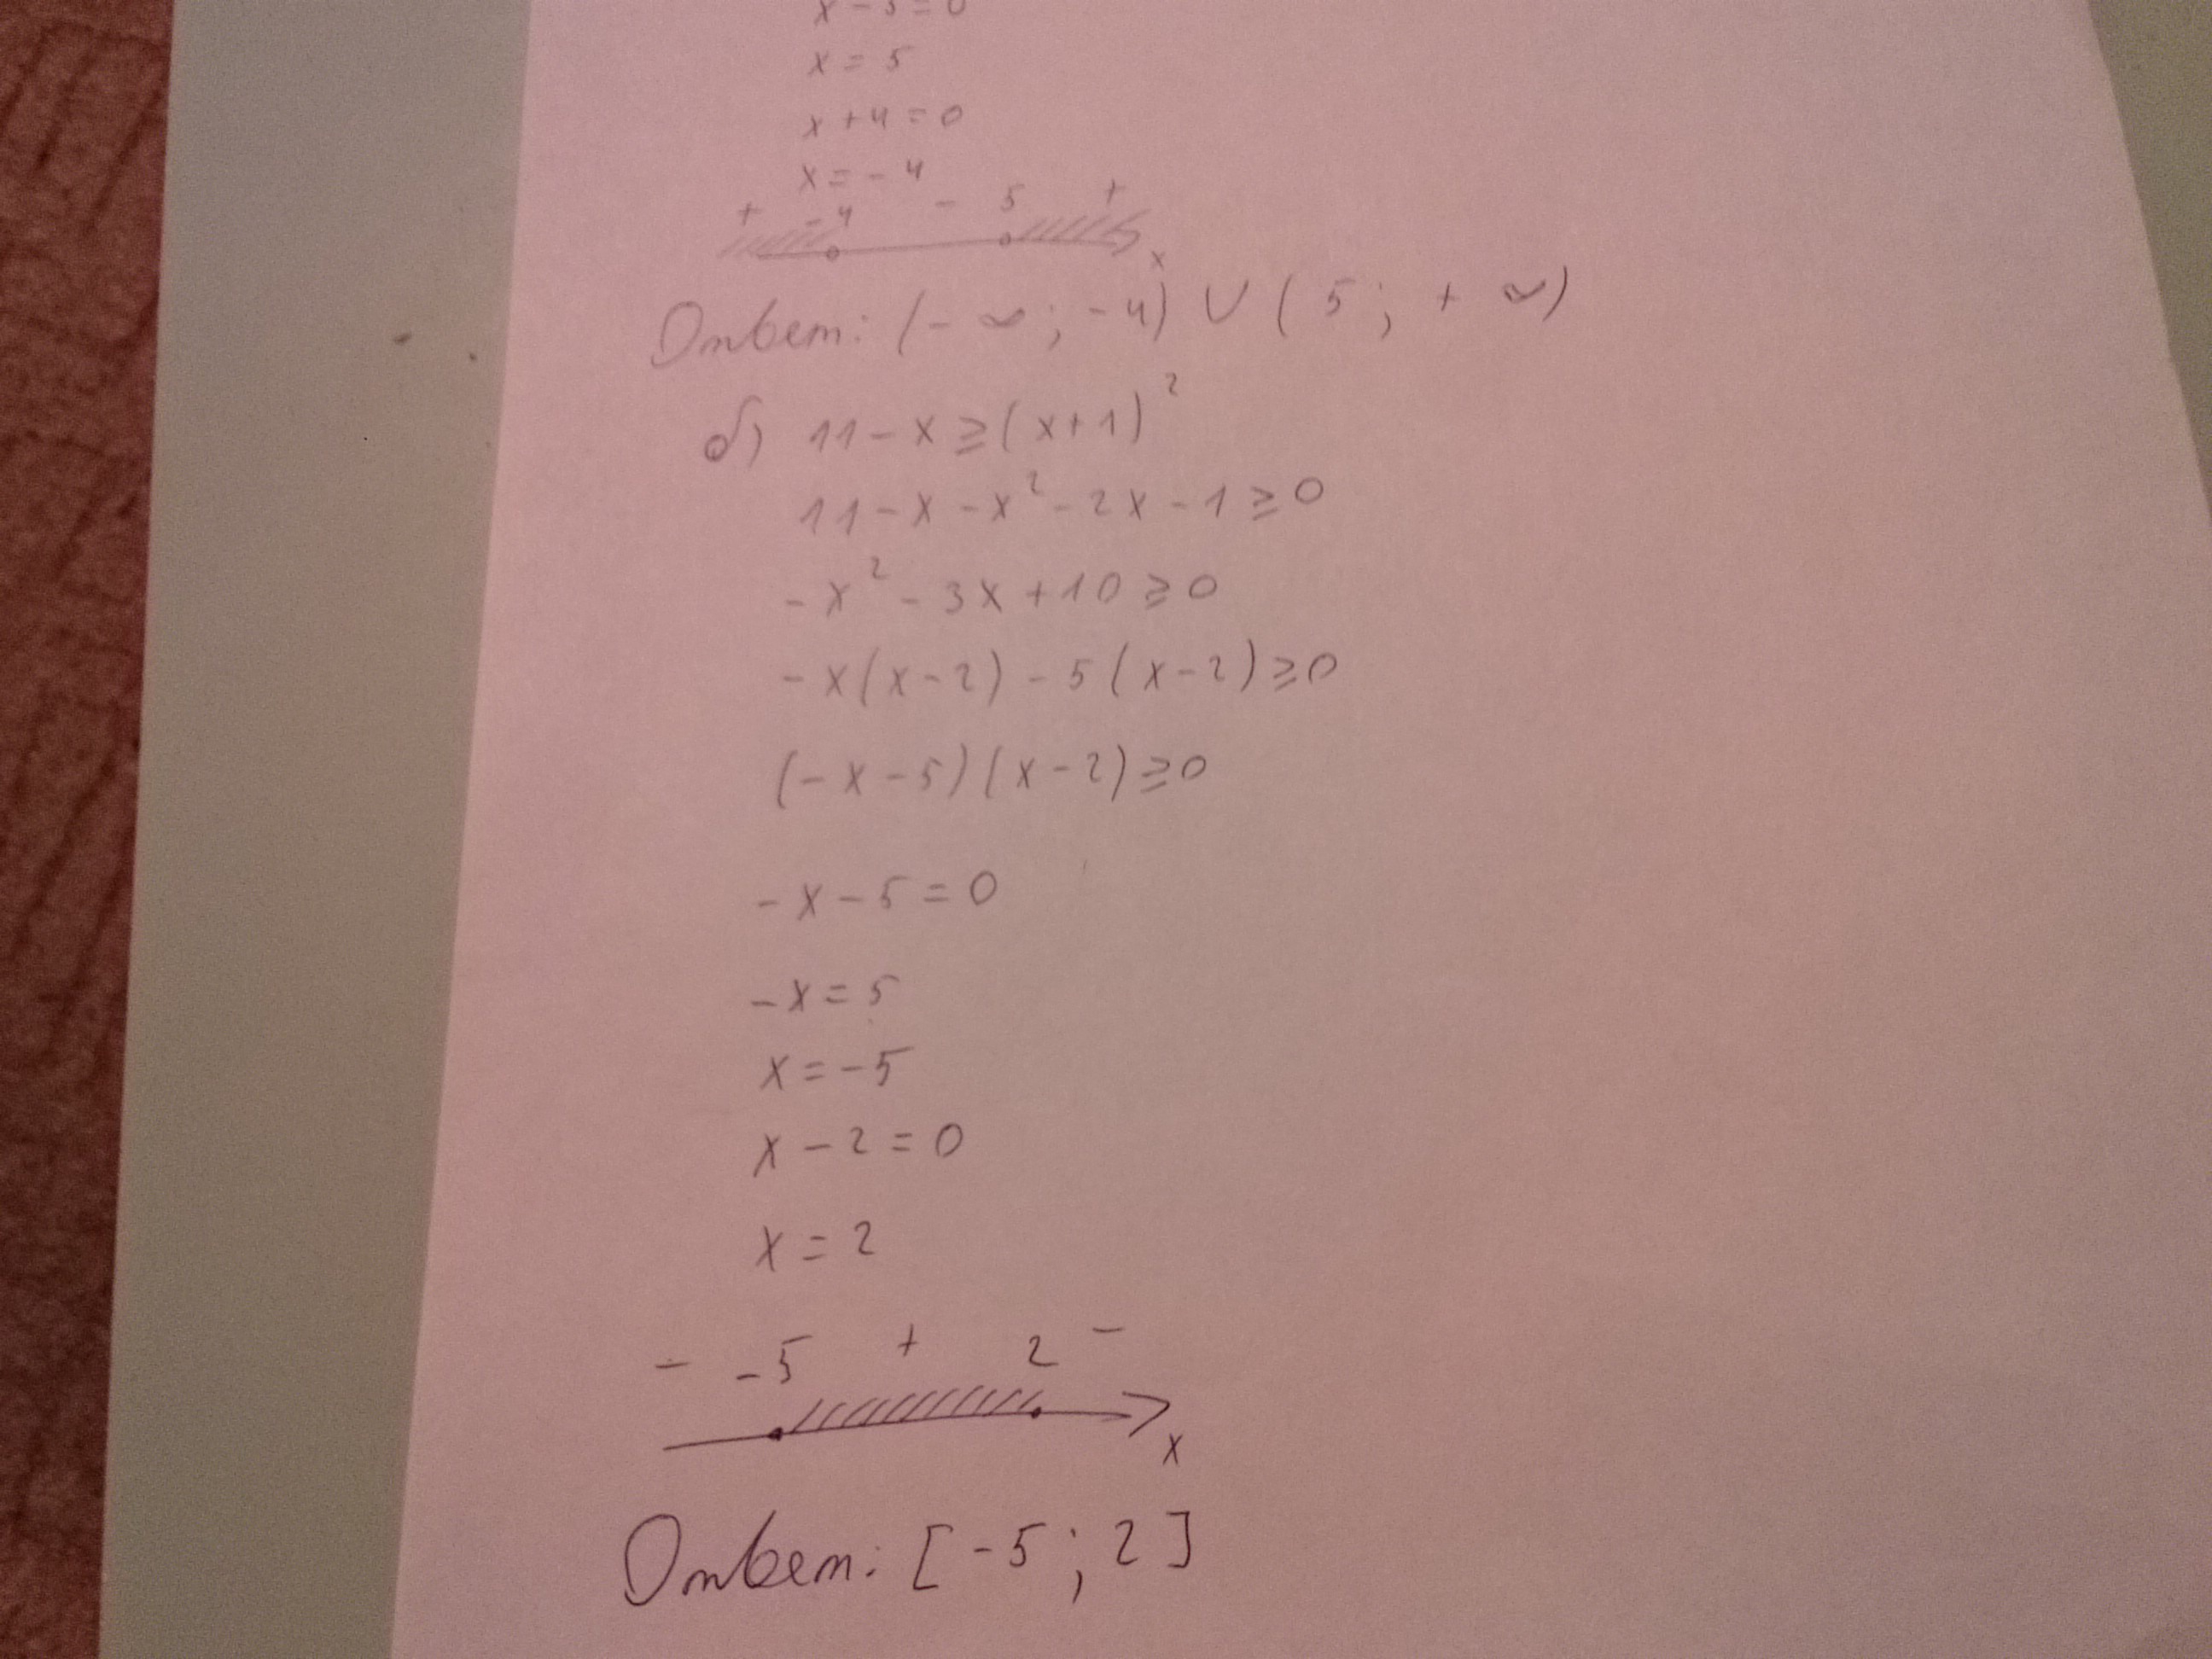 x - 5 = 0
x = 5
x + 4 = 0
x = - 4
+ -4 - 5 +
x
Ответ: (- ∞ ; - 4) ∪ ( 5 ; + ∞)
б) 11 - x ≥ (x + 1)²
11 - x - x² - 2x - 1 ≥ 0
- x² - 3x + 10 ≥ 0
- x(x - 2) - 5(x - 2) ≥ 0
(- x - 5)(x - 2) ≥ 0
- x - 5 = 0
- x = 5
x = - 5
x - 2 = 0
x = 2
- -5 + 2 -
x
Ответ: [ - 5 ; 2 ]